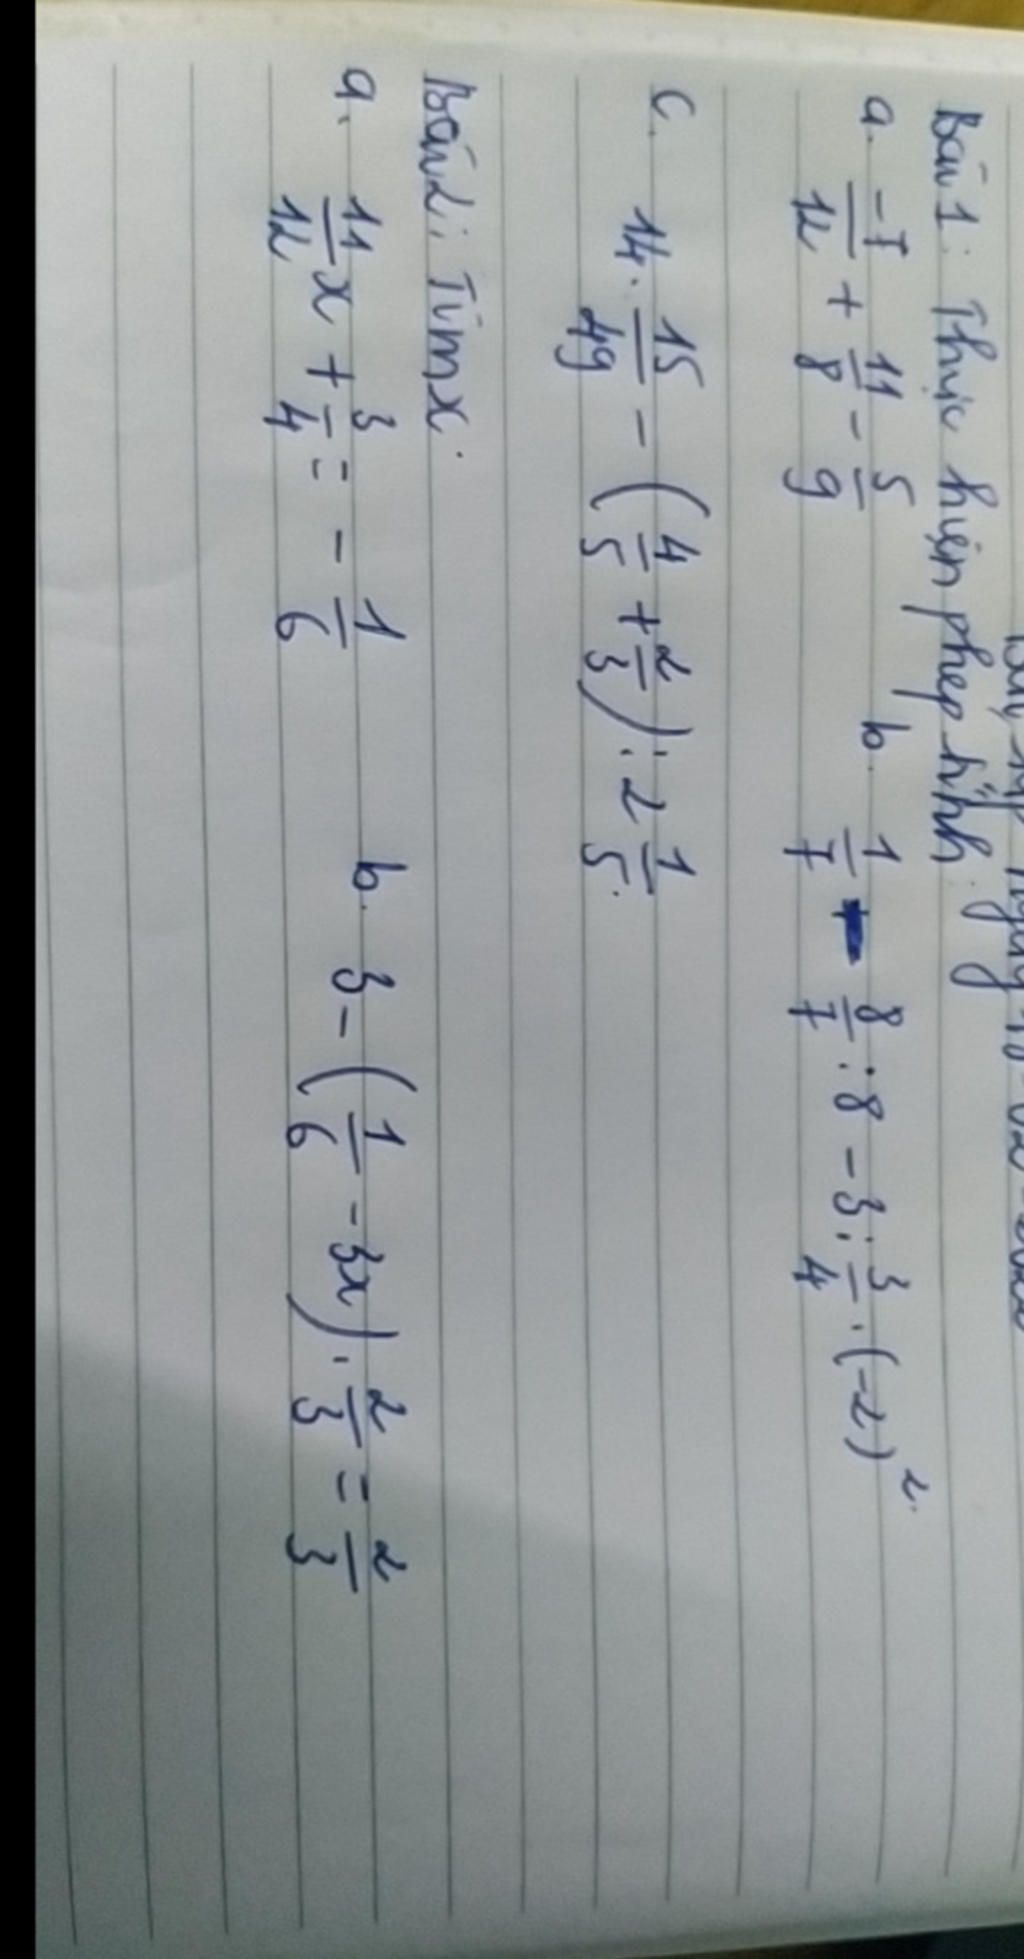 Bài 1: Thực hiện phép tính.
a. -7/12 + 11/8 - 5/9    b. 1/7 - 8/7 : 8 - 3 : 3/4 . (-2)².
c. 14. 15/49 - (4/5 + 2/3) : 2 1/5.
Bài 2: Tìm x.
a. 11/12 x + 3/4 = - 1/6    b. 3 - (1/6 - 3x) . 2/3 = 2/3